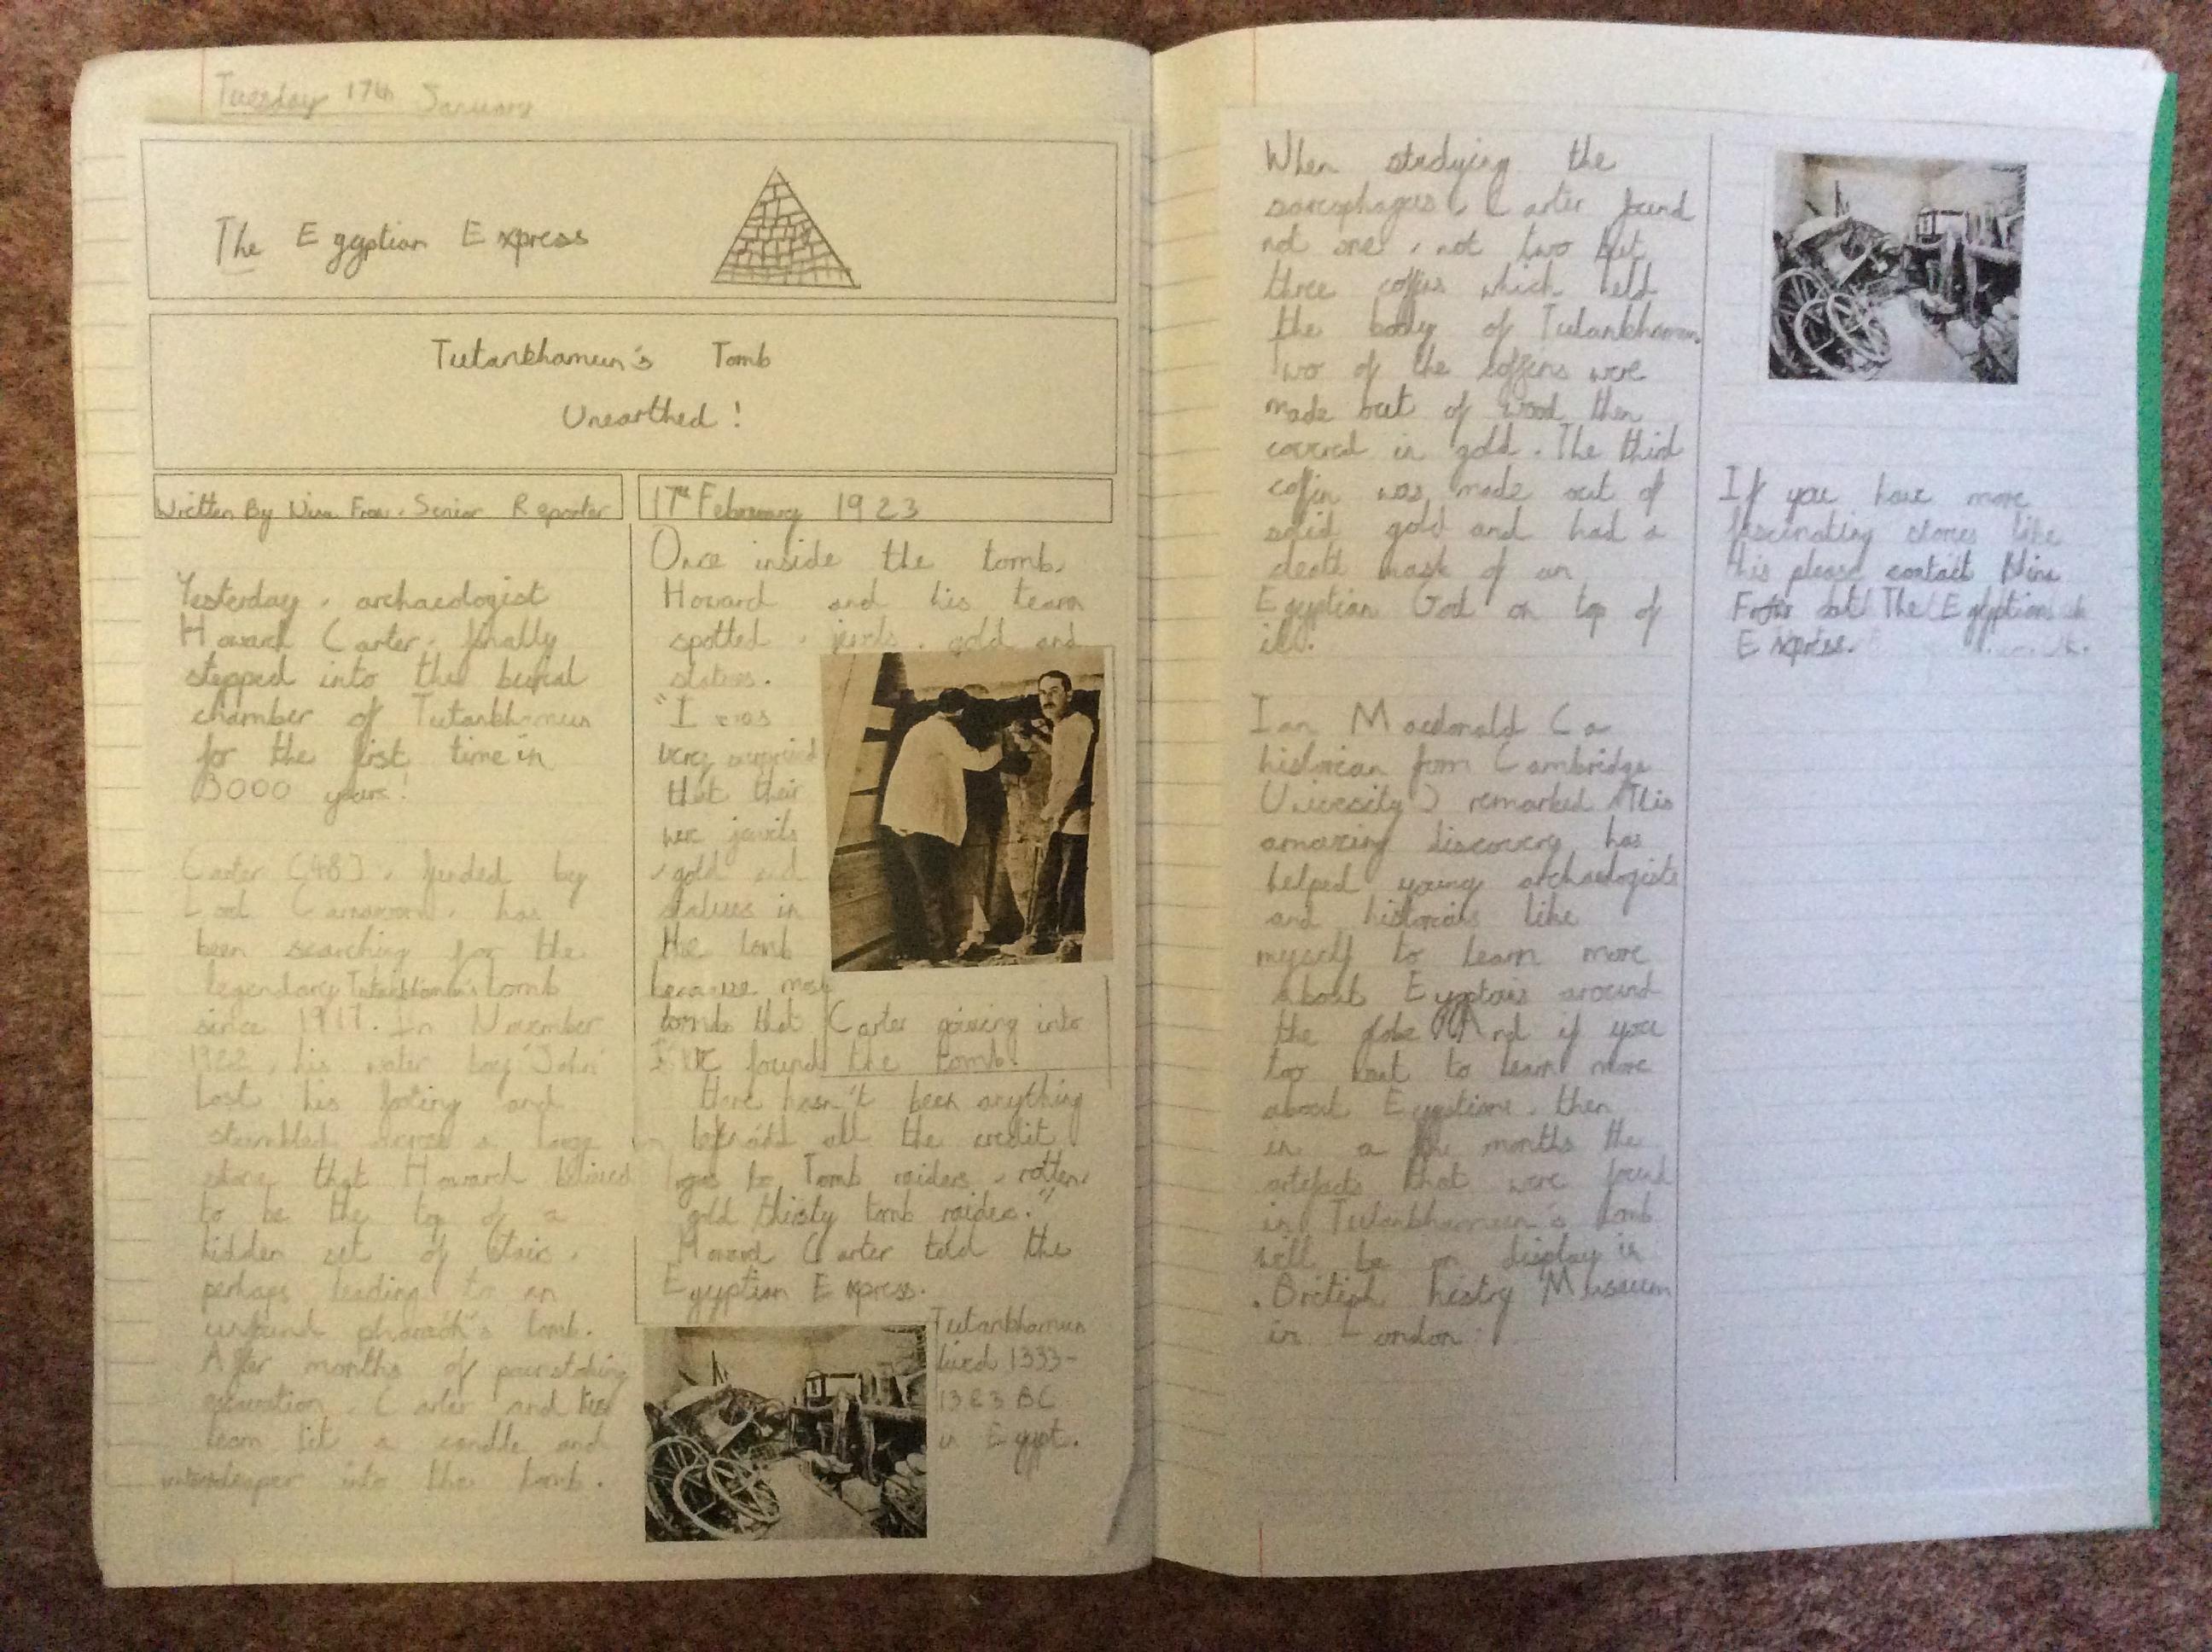 Tuesday 17th January
The Egyptian Express
Tutankhamun's Tomb
Unearthed!
Written By Nina Senior Reporter
17th February 1923
Yesterday, archaeologist
Howard Carter, finally
stepped into the burial
chamber of Tutankhamun
for the first time in
3000 years!
Carter (48), funded by
Lord Carnarvon, has
been searching for the
legendary Tutankhamun's tomb
since 1917. In November
1922, his water boy 'John'
lost his footing and
stumbled across a large
stone that Howard
to be the top of a
hidden set of stairs,
perhaps leading to an
unfound pharaoh's tomb.
After months of
Carter and his
team lit a candle and
into the tomb.
Once inside the tomb,
Howard and his team
spotted, gold and
statues.
"I was
very surprised
that their
were
, gold and
statues in
the tomb
because most
tombs that
I've found
there hasn't been anything
all the credit
goes to Tomb raiders, rotten,
gold thirsty tomb raiders."
Howard Carter told the
Egyptian Express.
Carter going into
the tomb.
Tutankhamun
lived 1333-
BC
in Egypt.
When studying the
sarcophagus, Carter found
not one, not two but
three coffins which held
the body of Tutankhamun
Two of the coffins were
made out of wood then
covered in gold. The third
coffin was made out of
solid gold and had a
death mask of an
Egyptian God on top of
Ian Macdonald (a
historian from Cambridge
University) remarked "This
amazing discovery has
helped young archaeologists
and historians like
myself to learn more
about around
the globe And if you
too want to learn more
about Egyptians, then
in a few months the
artefacts that were found
in Tutankhamun's tomb
will be on display in
British Museum
in London.
If you have more
fascinating stories like
this please contact Nina
at The Egyptian
Express.